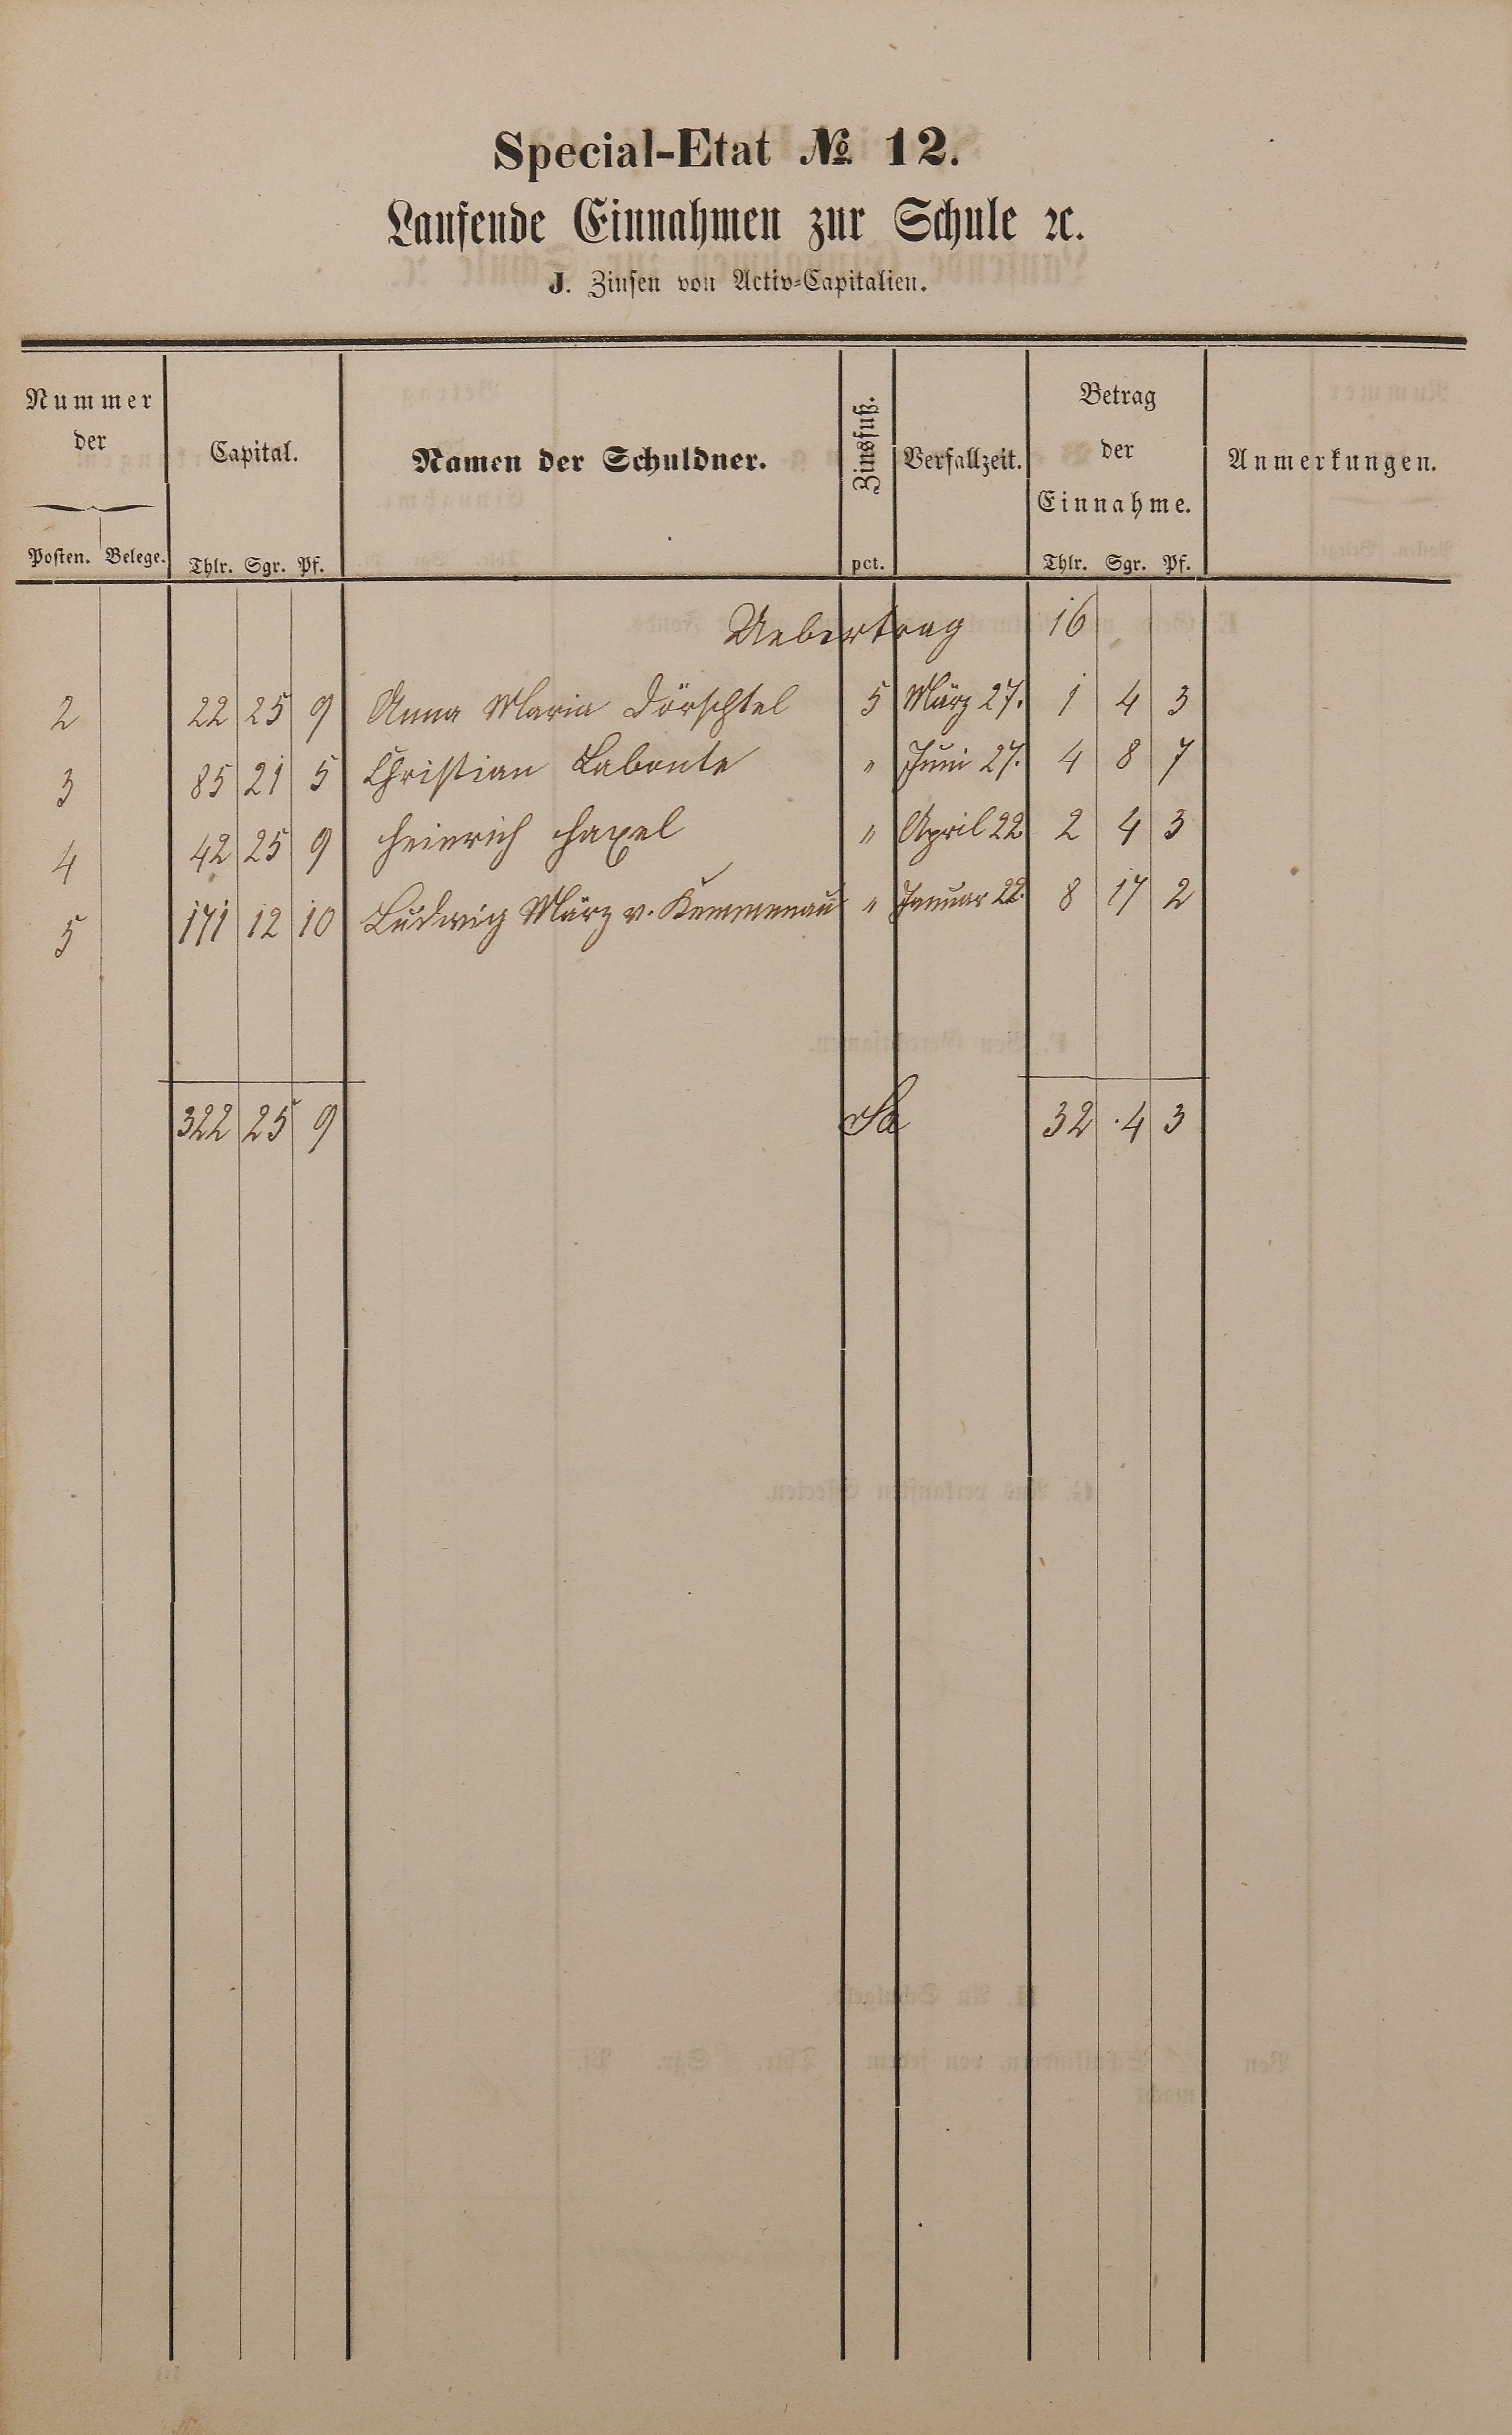 Special-Etat № 12.
Laufende Einnahmen zur Schule ꝛc.
J. Zinsen von Activ-Capitalien.
Nummer der
Posten. Belege.
Capital.
Thlr. Sgr. Pf.
Namen der Schuldner.
Zinsfuß.
pct.
Verfallzeit.
Betrag
der
Einnahme.
Thlr. Sgr. Pf.
Anmerkungen.
Uebertrag 16
2 22 25 9 Anna Maria Dörschtel 5 März 27. 1 4 3
3 85 21 5 Christian Labonte " Juni 27. 4 8 7
4 42 25 9 Heinrich Haxel " April 22 2 4 3
5 171 12 10 Ludwig März v. Kemmenau " Januar 22. 8 17 2
322 25 9 Sa 32 . 4 3